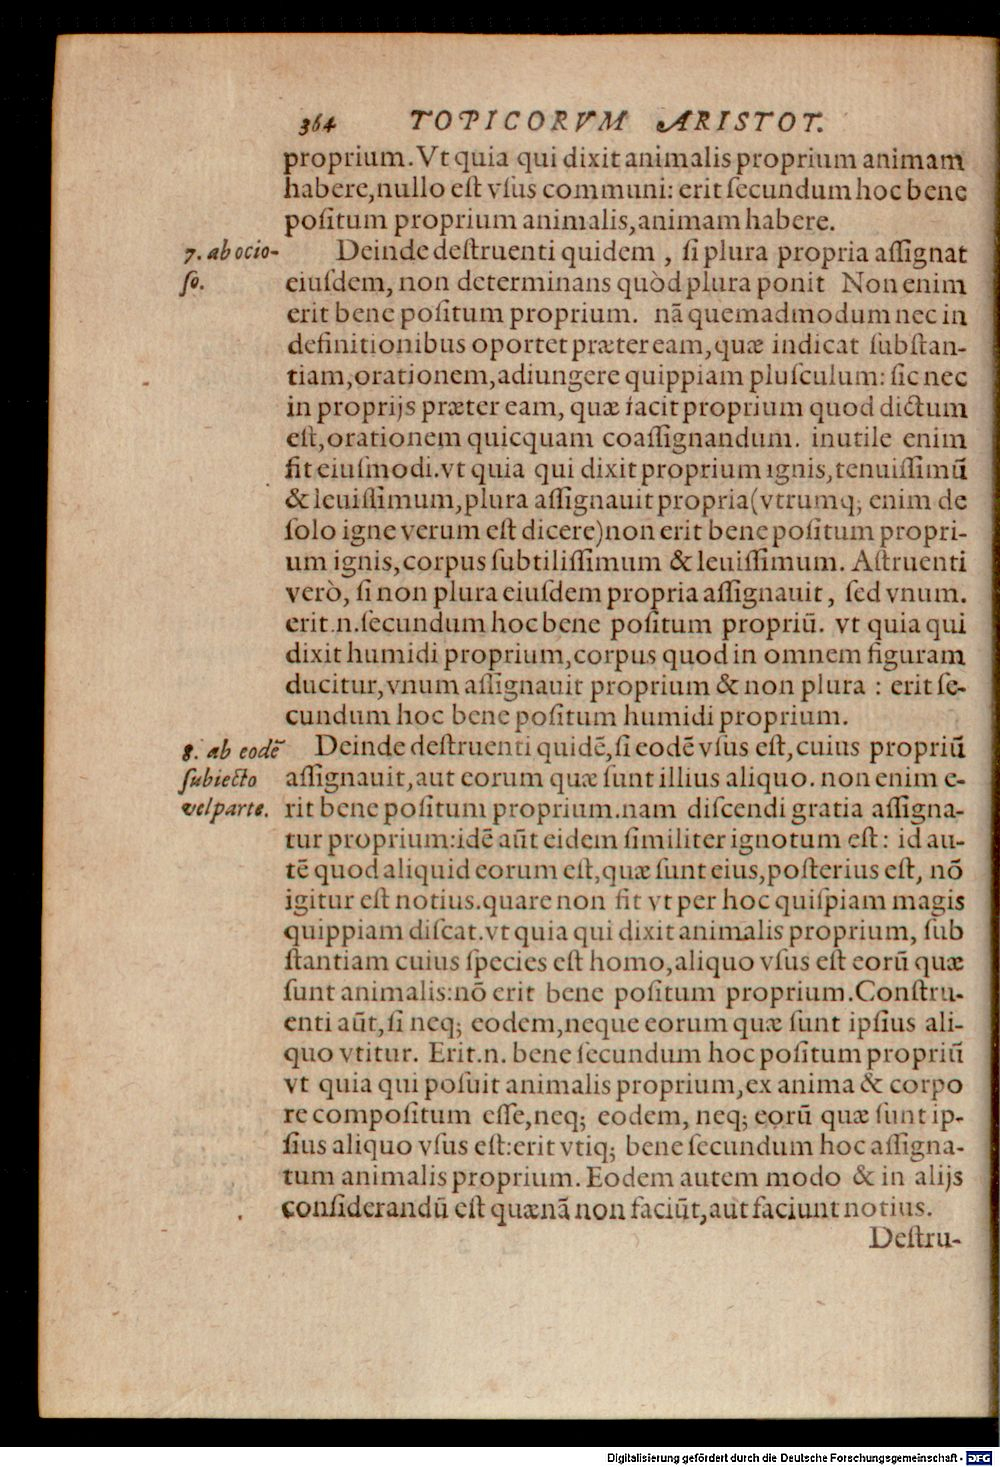 364 TOPICORVM ARISTOT.
proprium. Vt quia qui dixit animalis proprium animam
habere, nullo eſt vſus communi: erit ſecundum hoc bene
poſitum proprium animalis, animam habere.
7. ab ocio-
ſo.
Deinde deſtruenti quidem, ſi plura propria aſſignat
eiuſdem, non determinans quòd plura ponit Non enim
erit bene poſitum proprium. nã quemadmodum nec in
definitionibus oportet præter eam, quæ indicat ſubſtan-
tiam, orationem, adiungere quippiam pluſculum: ſic nec
in proprijs præter eam, quæ facit proprium quod dictum
eſt, orationem quicquam coaſſignandum. inutile enim
fit eiuſmodi. vt quia qui dixit proprium ignis, tenuiſſimũ
& leuiſſimum, plura aſſignauit propria (vtrumq; enim de
ſolo igne verum eſt dicere) non erit bene poſitum propri-
um ignis, corpus ſubtiliſſimum & leuiſſimum. Aſtruenti
verò, ſi non plura eiuſdem propria aſſignauit, ſed vnum.
erit .n. ſecundum hoc bene poſitum propriũ. vt quia qui
dixit humidi proprium, corpus quod in omnem figuram
ducitur, vnum aſſignauit proprium & non plura : erit ſe-
cundum hoc bene poſitum humidi proprium.
8. ab eodẽ
ſubiecto
vel parte.
Deinde deſtruenti quidẽ, ſi eodẽ vſus eſt, cuius propriũ
aſſignauit, aut eorum quæ ſunt illius aliquo. non enim e-
rit bene poſitum proprium. nam diſcendi gratia aſſigna-
tur proprium: idẽ aũt eidem ſimiliter ignotum eſt: id au-
tẽ quod aliquid eorum eſt, quæ ſunt eius, poſterius eſt, nõ
igitur eſt notius. quare non fit vt per hoc quiſpiam magis
quippiam diſcat. vt quia qui dixit animalis proprium, ſub
ſtantiam cuius ſpecies eſt homo, aliquo vſus eſt eorũ quæ
ſunt animalis: nõ erit bene poſitum proprium. Conſtru-
enti aũt, ſi neq; eodem, neque eorum quæ ſunt ipſius ali-
quo vtitur. Erit .n. bene ſecundum hoc poſitum propriũ
vt quia qui poſuit animalis proprium, ex anima & corpo
re compoſitum eſſe, neq; eodem, neq; eorũ quæ ſunt ip-
ſius aliquo vſus eſt: erit vtiq; bene ſecundum hoc aſſigna-
tum animalis proprium. Eodem autem modo & in alijs
conſiderandũ eſt quænã non faciũt, aut faciunt notius.
Deſtru-
Digitalisierung gefördert durch die Deutsche Forschungsgemeinschaft - DFG